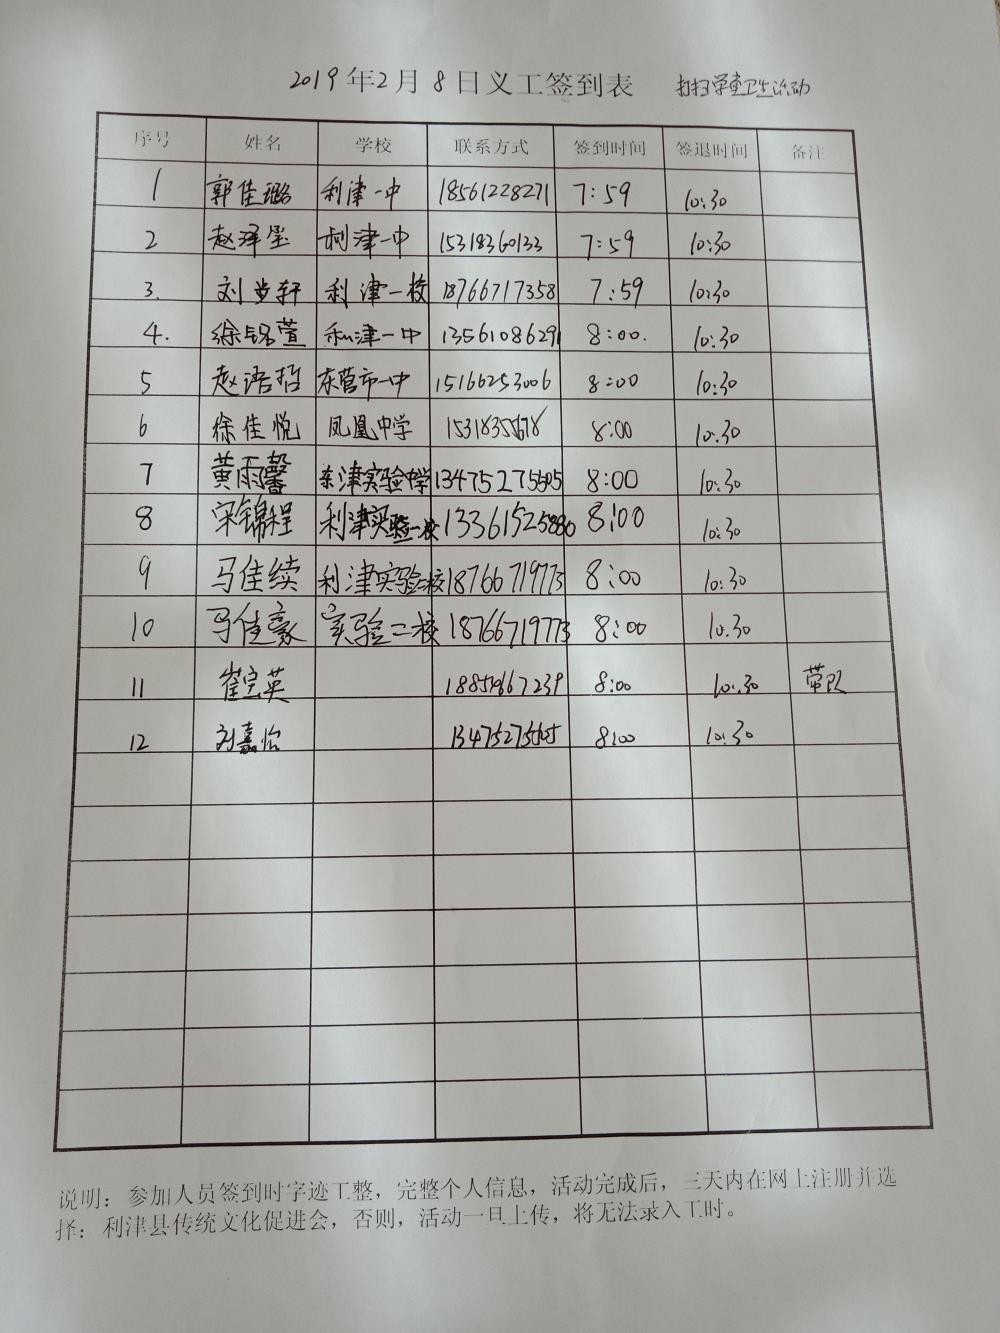 2019年2月8日义工签到表 打扫学堂卫生活动
序号 姓名 学校 联系方式 签到时间 签退时间 备注
1 郭佳璐 利津一中 18561228271 7:59 10:30
2 赵泽 利津一中 15318360133 7:59 10:30
3. 刘步轩 利津一校 18766717358 7:59 10:30
4. 徐铭萱 利津一中 13561086291 8:00. 10:30
5 赵浯哲 东营市一中 15166253006 8:00 10:30
6 徐佳悦 凤凰中学 8:00 10:30
7 黄雨馨 东津实验中学 13475275505 8:00 10:30
8 宋锦程 利津实验一校 8:00 10:30
9 马佳续 利津实验二校 18766719773 8:00 10:30
10 马佳豪 实验二校 18766719773 8:00 10.30
11 崔宝英 8:00 10:30 带队
12 刘嘉怡 13475275505 8:00 10:30
说明：参加人员签到时字迹工整，完整个人信息，活动完成后，三天内在网上注册并选
择：利津县传统文化促进会，否则，活动一旦上传，将无法录入工时。